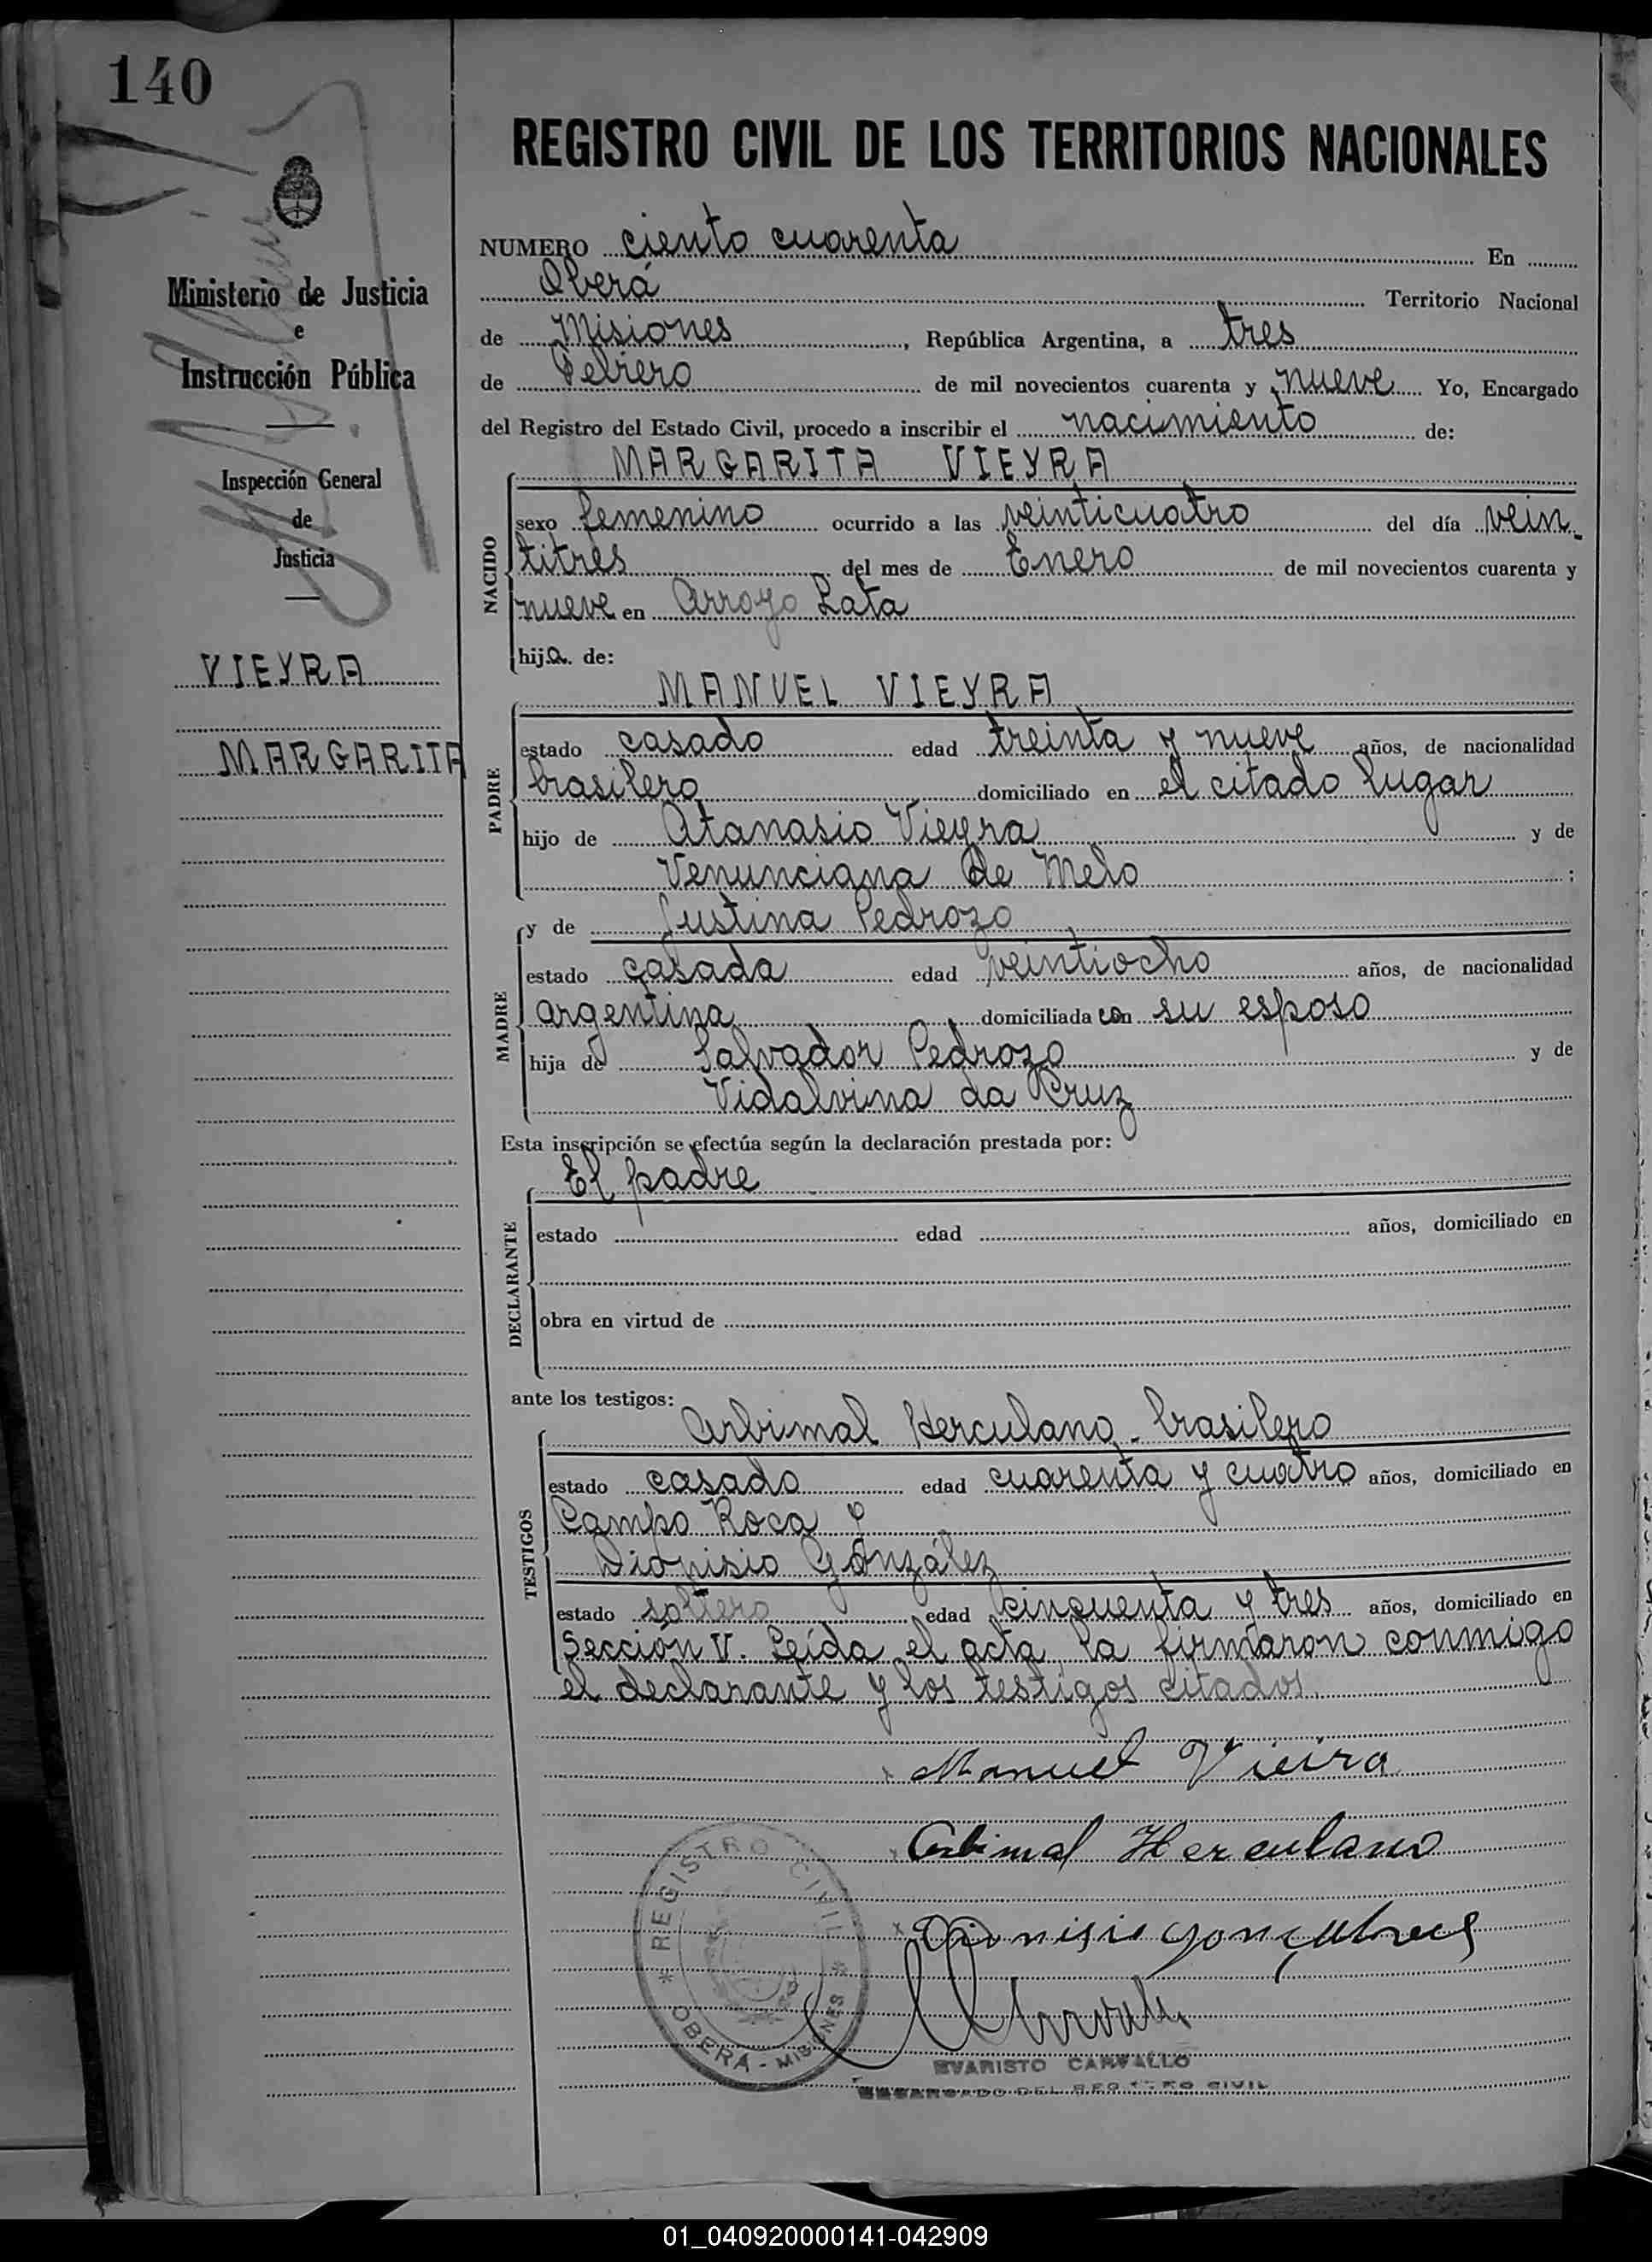 140
Ministerio de Justicia
e
Instrucción Pública
Inspección General
de
Justicia
VIEYRA
MARGARITA
REGISTRO CIVIL DE LOS TERRITORIOS NACIONALES
NUMERO ciento cuarenta En
Oberá Territorio Nacional
de Misiones, República Argentina, a tres
de Febrero de mil novecientos cuarenta y nueve Yo, Encargado
del Registro del Estado Civil, procedo a inscribir el nacimiento de:
MARGARITA VIEYRA
NACIDO
sexo femenino ocurrido a las veinticuatro del día vein-
titrés del mes de Enero de mil novecientos cuarenta y
nueve en Arroyo Lata
hija. de:
MANUEL VIEYRA
PADRE
estado casado edad treinta y nueve años, de nacionalidad
brasilero domiciliado en el citado lugar
hijo de Atanasio Vieyra y de
Venunciana de Melo ;
y de Justina Pedrozo
MADRE
estado casada edad veintiocho años, de nacionalidad
argentina domiciliada con su esposo
hija de Salvador Pedrozo y de
Vidalvina da Cruz
Esta inscripción se efectúa según la declaración prestada por:
El padre
DECLARANTE
estado edad años, domiciliado en
obra en virtud de
ante los testigos:
Arbimal Herculano - brasilero
TESTIGOS
estado casado edad cuarenta y cuatro años, domiciliado en
Campo Roca y
Dionisio González
estado soltero edad cincuenta y tres años, domiciliado en
Sección V. Leída el acta la firmaron conmigo
el declarante y los testigos citados.
Manuel Vieira
Arbimal Herculano
Dionisio Gonçalves
REGISTRO CIVIL
OBERÁ - MISIONES
EVARISTO CARVALLO
ENCARGADO DEL REGISTRO CIVIL
01_040920000141-042909